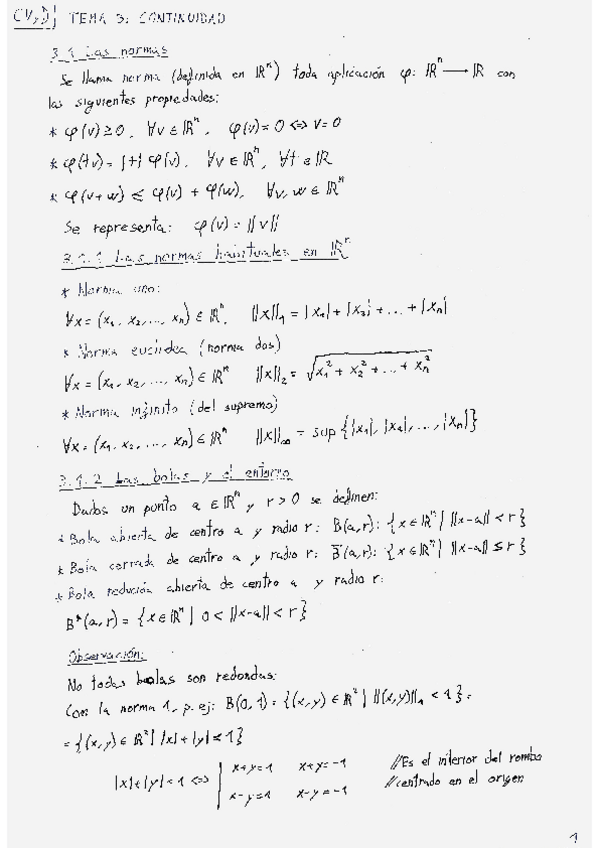 CV, D) TEMA 3: CONTINUIDAD
3.1 Las normas
Se llama norma (definida en ℝⁿ) toda aplicación φ: ℝⁿ ⟶ ℝ con
las siguientes propiedades:
* φ(v) ≥ 0, ∀v ∈ ℝⁿ, φ(v) = 0 ⇔ v = 0
* φ(tv) = |t| φ(v), ∀v ∈ ℝⁿ, ∀t ∈ ℝ
* φ(v+w) ≤ φ(v) + φ(w), ∀v, w ∈ ℝⁿ
Se representa: φ(v) = ||v||
3.1.1 Las normas habituales en ℝⁿ
* Norma uno:
∀x = (x₁, x₂, ..., xₙ) ∈ ℝⁿ, ||x||₁ = |x₁| + |x₂| + ... + |xₙ|
* Norma euclídea (norma dos)
∀x = (x₁, x₂, ..., xₙ) ∈ ℝⁿ ||x||₂ = √(x₁² + x₂² + ... + xₙ²)
* Norma infinito (del supremo)
∀x = (x₁, x₂, ..., xₙ) ∈ ℝⁿ ||x||∞ = sup {|x₁|, |x₂|, ..., |xₙ|}
3.1.2 Las bolas y el entorno
Dados un punto a ∈ ℝⁿ y r > 0 se definen:
* Bola abierta de centro a y radio r: B(a,r): {x ∈ ℝⁿ | ||x-a|| < r}
* Bola cerrada de centro a y radio r: B̅(a,r): {x ∈ ℝⁿ | ||x-a|| ≤ r}
* Bola reducida abierta de centro a y radio r:
B*(a,r) = {x ∈ ℝⁿ | 0 < ||x-a|| < r}
Observación:
No todas bolas son redondas:
Con la norma 1, p.ej: B(0,1) = {(x,y) ∈ ℝ² | ||(x,y)||₁ < 1} =
= {(x,y) ∈ ℝ² | |x|+|y| < 1}
|x|+|y| = 1 ⇔ | x+y=1 x+y=-1 //Es el interior del rombo
x-y=1 x-y=-1 //centrado en el origen
1